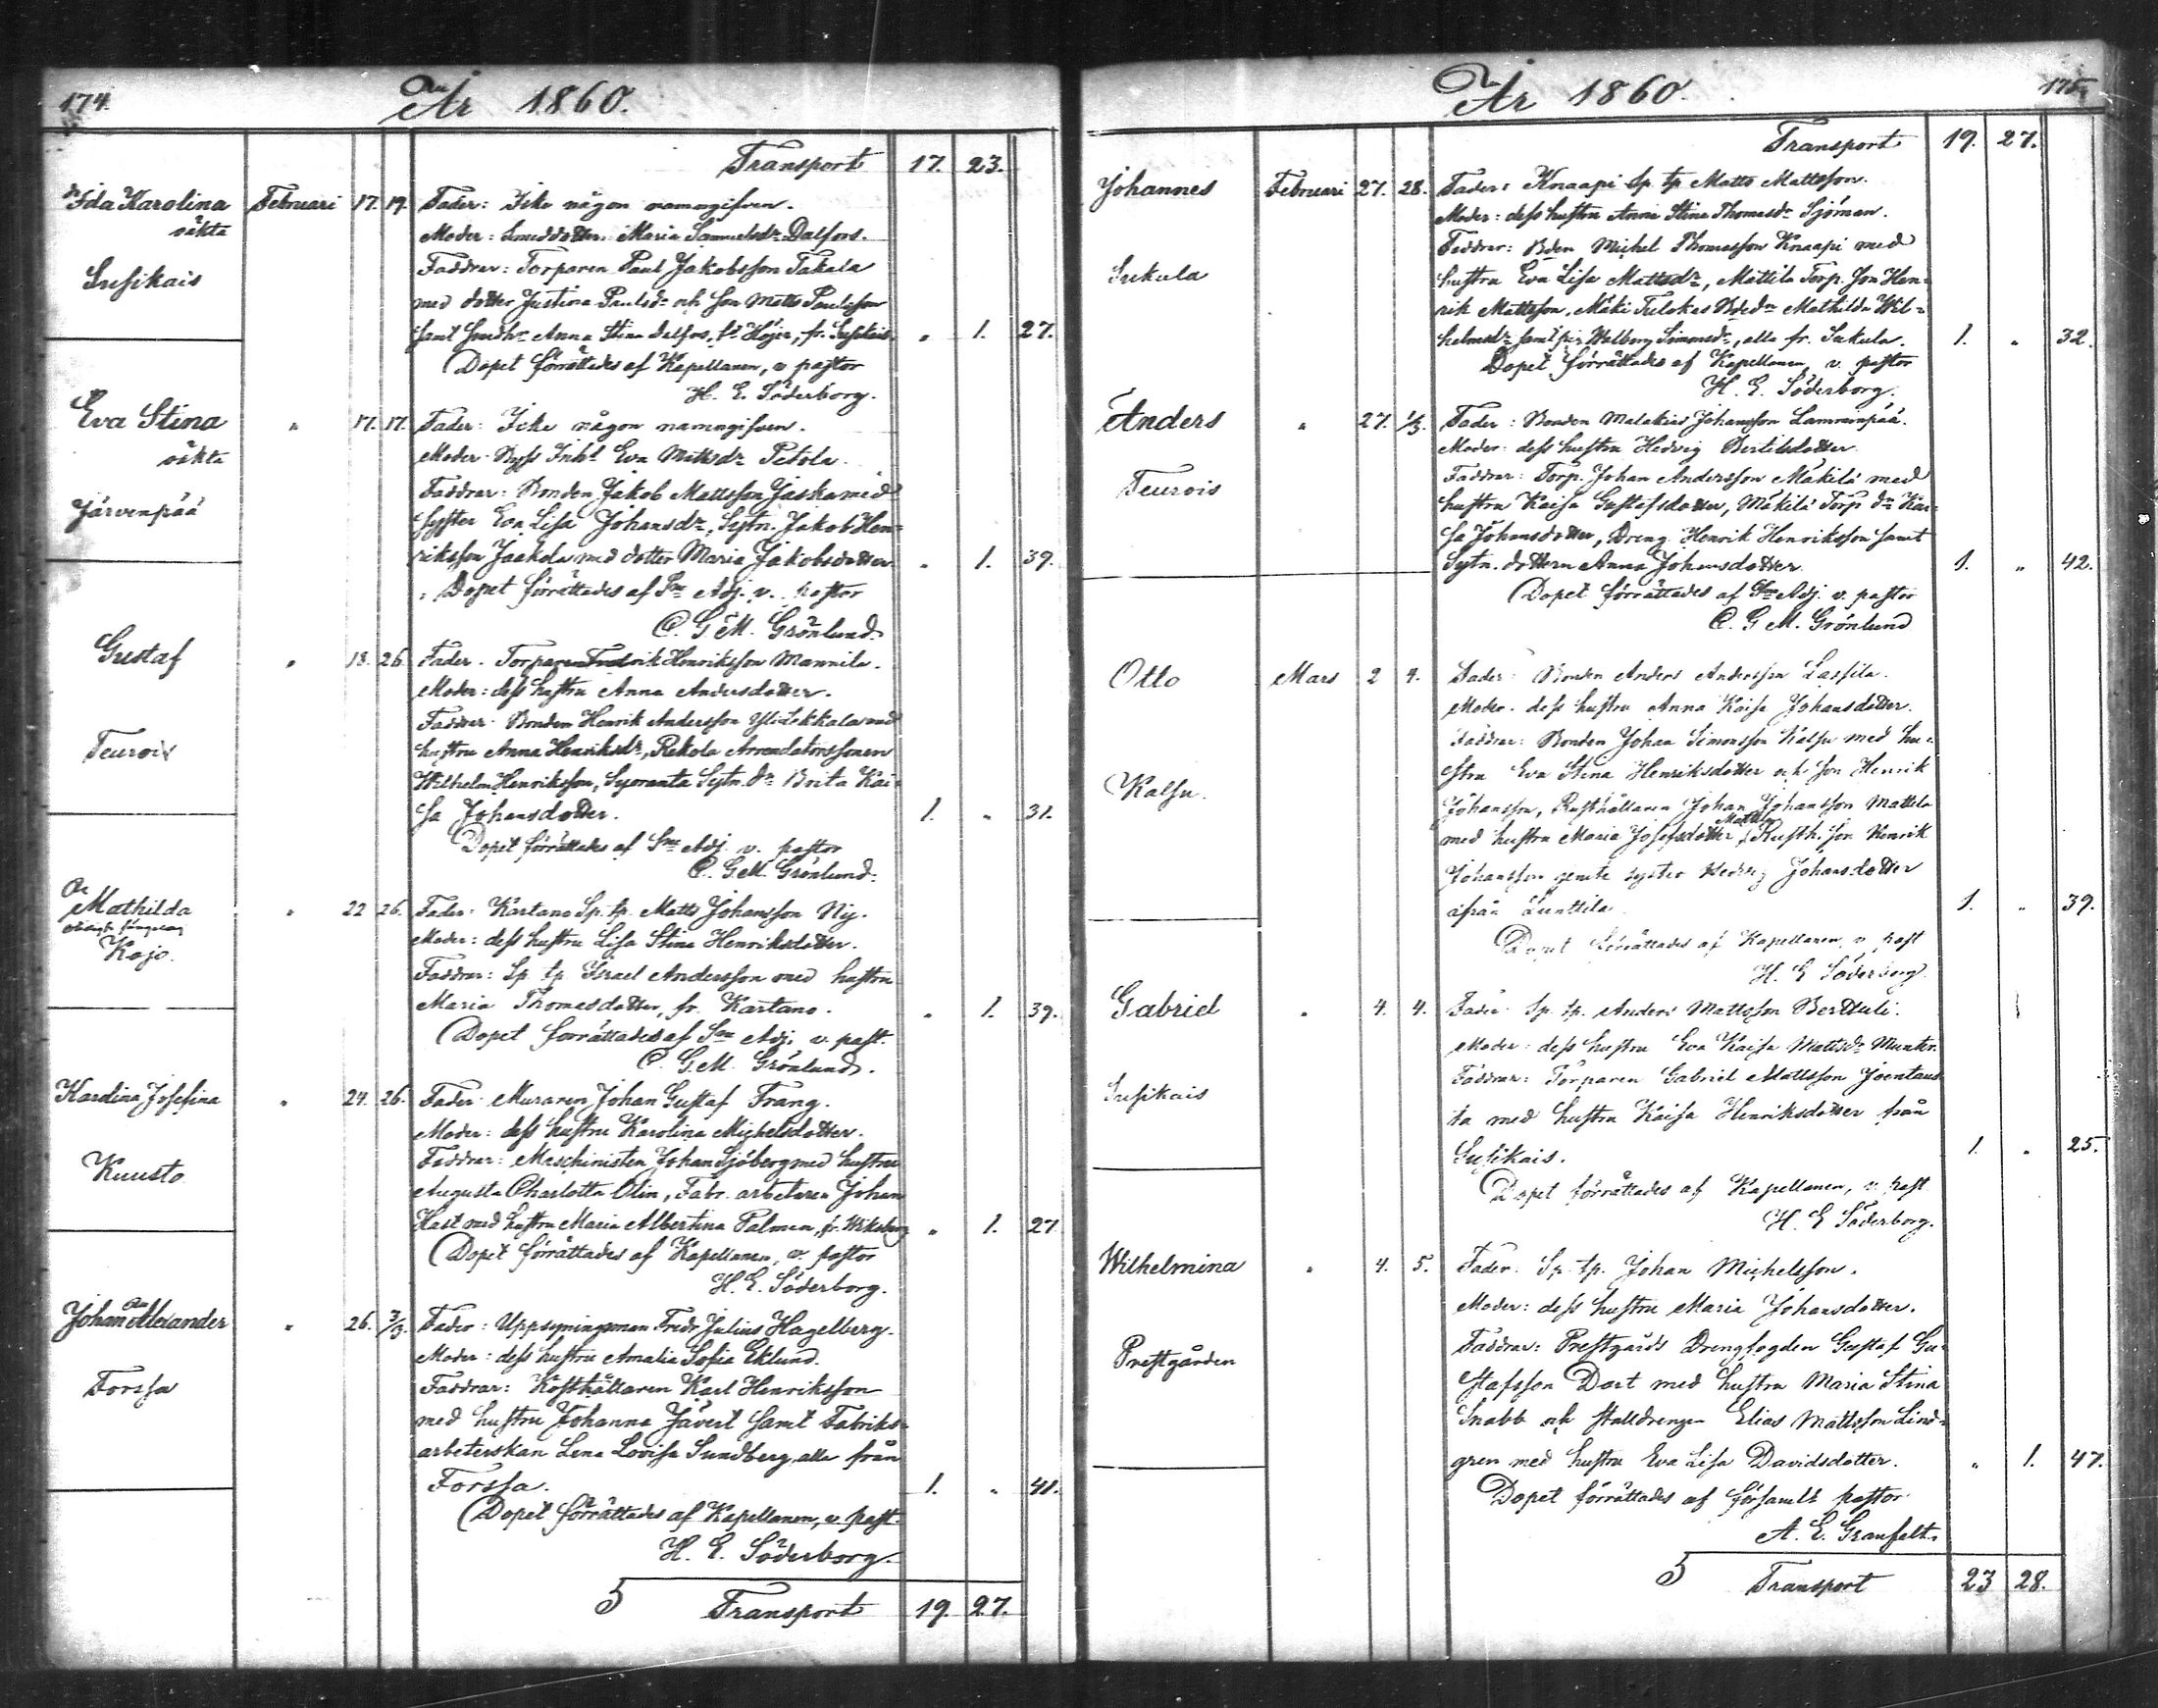 174.
År 1860.
Transport 17. 23.
Ida Karolina Februari 17. 19. Fader: Icke någon namngifven.
oäkta Moder: Smeddotter Maria Samuelsdr Dalfors.
Susikais Faddrar: Torparen Paul Jakobsson Takala
med dotter Justina Paulsdr och son Matts Paulsson
samt Anna Stina Dalfors, Höijer, fr. Susikais. " 1. 27.
Dopet förrättades af Kapellanen, v pastor
H. E. Söderborg.
Eva Stina " 17. 17. Fader: Icke någon namngifven.
oäkta Moder: Inh. Eva Mattsdr Petola.
Järvenpää Faddrar: Bonden Jakob Mattsson Jaska med
syster Eva Lisa Johansdr, Sytn. Jakob Hen-
riksson Jaakola med dotter Maria Jakobsdotter. " 1. 39.
Dopet förrättades af Sne Adj. v. pastor
C. G. M. Grönlund.
Gustaf " 18. 26. Fader: Torparen Fredrik Henriksson Mannila.
Moder: dess hustru Anna Andersdotter.
Teurois Faddrar: Bonden Henrik Andersson Yli Lekkala med
hustru Anna Henriksdr, Rekola Arrendatorssonen
Wilhelm Henriksson, Sytn. dr Brita Kai-
sa Johansdotter. 1. " 31.
Dopet förrättades af Sne Adj. v. pastor
C. G. M. Grönlund.
Mathilda " 22 26. Fader: Kartano Sp. tp. Matts Johansson Ny.
Kojo. Moder: dess hustru Lisa Stina Henriksdotter.
Faddrar: Sp. tp Israel Andersson med hustru
Maria Thomasdotter, fr. Kartano. " 1. 39.
Dopet förrättades af Sne Adj. v. past.
C. G. M. Grönlund.
Karolina Josefina " 24. 26. Fader: Muraren Johan Gustaf Frang.
Moder: dess hustru Karolina Michelsdotter.
Kuusto Faddrar: Maschinisten Johan Sjöberg med hustru
Augusta Charlotta Olin, Fabr. arbetaren Johan
Hast med hustru Maria Albertina Palmen, fr. Wiksberg " 1. 27
Dopet förrättades af Kapellanen, v. pastor
H. E. Söderborg.
Johan Alexander " 26. 3/3. Fader: Uppsyningsman Fredr Julius Hagelberg.
Moder: dess hustru Amalia Sofia Eklund.
Forssa Faddrar: Kosthållaren Karl Henriksson
med hustru Johanna Jävert samt Fabriks-
arbeterskan Lena Lovisa Sundberg, alla från
Forssa. 1. " 41.
Dopet förrättades af Kapellanen, v. past.
H. E. Söderborg.
5 Transport 19. 27.
175.
År 1860.
Transport 19. 27.
Johannes Februari 27. 28. Fader: Knaapi Sp. tp Matts Mattsson.
Moder: dess hustru Anna Stina Thomasdr Sjöman.
Sukula Faddrar: Bden Michel Thomasson Knaapi med
hustru Eva Lisa Mattsdr, Mattila Torp. Son Hen-
rik Mattsson, Mäki Tulokas Mathilda Wil-
helmsdr samt Walborg Simonsdr, alla fr. Sukula. 1. " 32.
Dopet förrättades af Kapellanen v. pastor
H. E. Söderborg.
Anders " 27. 1/3. Fader: Bonden Malakias Johansson Lamminpää.
Moder: dess hustru Hedvig Bertilsdotter.
Teurois Faddrar: Torp. Johan Andersson Mäkilä med
hustru Kaisa Gustafsdotter, Mäkilä Torp. dr Kai-
sa Johansdotter, Dreng Henrik Henriksson samt
Sytn. dottern Anna Johansdotter. 1. " 42.
Dopet förrättades af Sne Adj. v. pastor
C. G. M. Grönlund
Otto Mars 2 4. Fader: Bonden Anders Andersson Lassila.
Moder: dess hustru Anna Kaisa Johansdotter.
Kalsu. Faddrar: Bonden Johan Simonsson Kalsu med hu-
stru Eva Stina Henriksdotter och son Henrik
Johansson, Rusthållaren Johan Johansson Mattila
med hustru Maria Josefsdotter, Mattila Rusth. son Henrik
Johansson jemte syster Hedvig Johansdotter
ifrån Lunttila. 1. " 39.
Dopet förrättades af Kapellanen, v. past
H. E Söderborg.
Gabriel " 4. 4. Fader: Sp. tp. Anders Mattsson Berttuli.
Moder: dess hustru Eva Kaisa Mattsdr Munter.
Susikais Faddrar: Torparen Gabriel Mattsson Joentaus-
ta med hustru Kaisa Henriksdotter från
Susikais. 1. " 25.
Dopet förrättades af Kapellanen, v. past
H. E Söderborg.
Wilhelmina " 4. 5. Fader: Sp. tp. Johan Michelsson.
Moder: dess hustru Maria Johansdotter.
Prestgården Faddrar: Prestgårds Drengfogden Gustaf Gu-
stafsson Dort med hustru Maria Stina
Snabb och stalldrengen Elias Mattsson Lind-
gren med hustru Eva Lisa Davidsdotter. " 1. 47.
Dopet förrättades af församls pastor
A. E. Granfelt.
5 Transport 23 28.